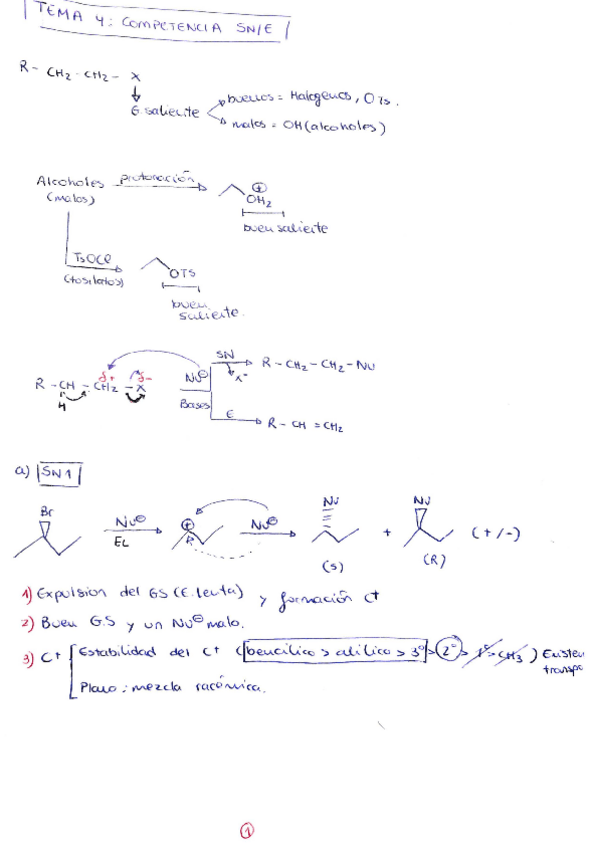 TEMA 4: COMPETENCIA SN/E
R - CH2 - CH2 - X
G. saliente
buenos = Halogenos, OTs.
malos = OH (alcoholes)
Alcoholes protonación ⊕
(malos) OH2
buen saliente
TsOCl
(tosilatos) OTS
buen
saliente.
SN R - CH2 - CH2 - NU
δ+ δ- X-
R - CH - CH2 - X NU⊖
H Bases E R - CH = CH2
a) SN1
Br NU NU
NU⊖ ⊕ NU⊖ + (+/-)
EL R (S) (R)
1) Expulsion del GS (E. lenta) y formación C+
2) Buen G.S y un NU⊖ malo.
3) C+ Estabilidad del C+ (bencílico > alílico > 3º > 2º > 1º > CH3) Existen
transpo
Plano: mezcla racémica.
1